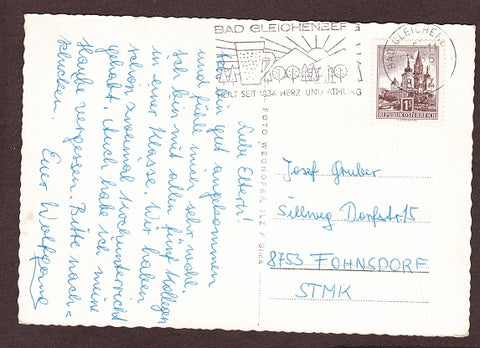 BAD GLEICHENBERG
HEILT SEIT 1834 HERZ UND ATMUNG
BAD GLEICHENB
1S
REPUBLIK ÖSTERREICH
Liebe Eltern!
Ich bin gut angekommen
und fühle mich sehr wohl.
Ich bin mit allen fünf Kollegen
in einer Klasse. Wir haben
schon zweimal Kochunterricht
gehabt. Auch habe ich meine
Haube vergessen. Bitte nach=
schicken.
Euer Wolfgang
FOTO WEDHOFER, ILZ / Stmk
Josef Gruber
Sillweg Dorfstr 15
8753 FOHNSDORF
STMK